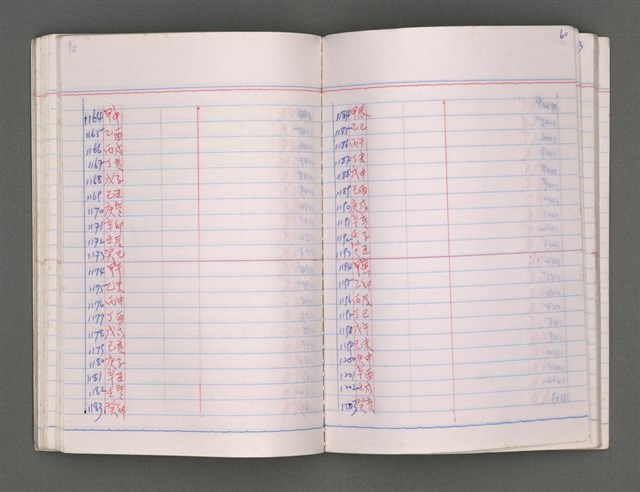 1164甲申
1165乙酉
1166丙戌
1167丁亥
1168戊子
1169己丑
1170庚寅
1171辛卯
1172壬辰
1173癸巳
1174甲午
1175乙未
1176丙申
1177丁酉
1178戊戌
1179己亥
1180庚子
1181辛丑
1182壬寅
1183癸卯
60
1184甲辰
1185乙巳
1186丙午
1187丁未
1188戊申
1189己酉
1190庚戌
1191辛亥
1192壬子
1193癸丑
1194甲寅
1195乙卯
1196丙辰
1197丁巳
1198戊午
1199己未
1200庚申
1201辛酉
1202壬戌
1203癸亥